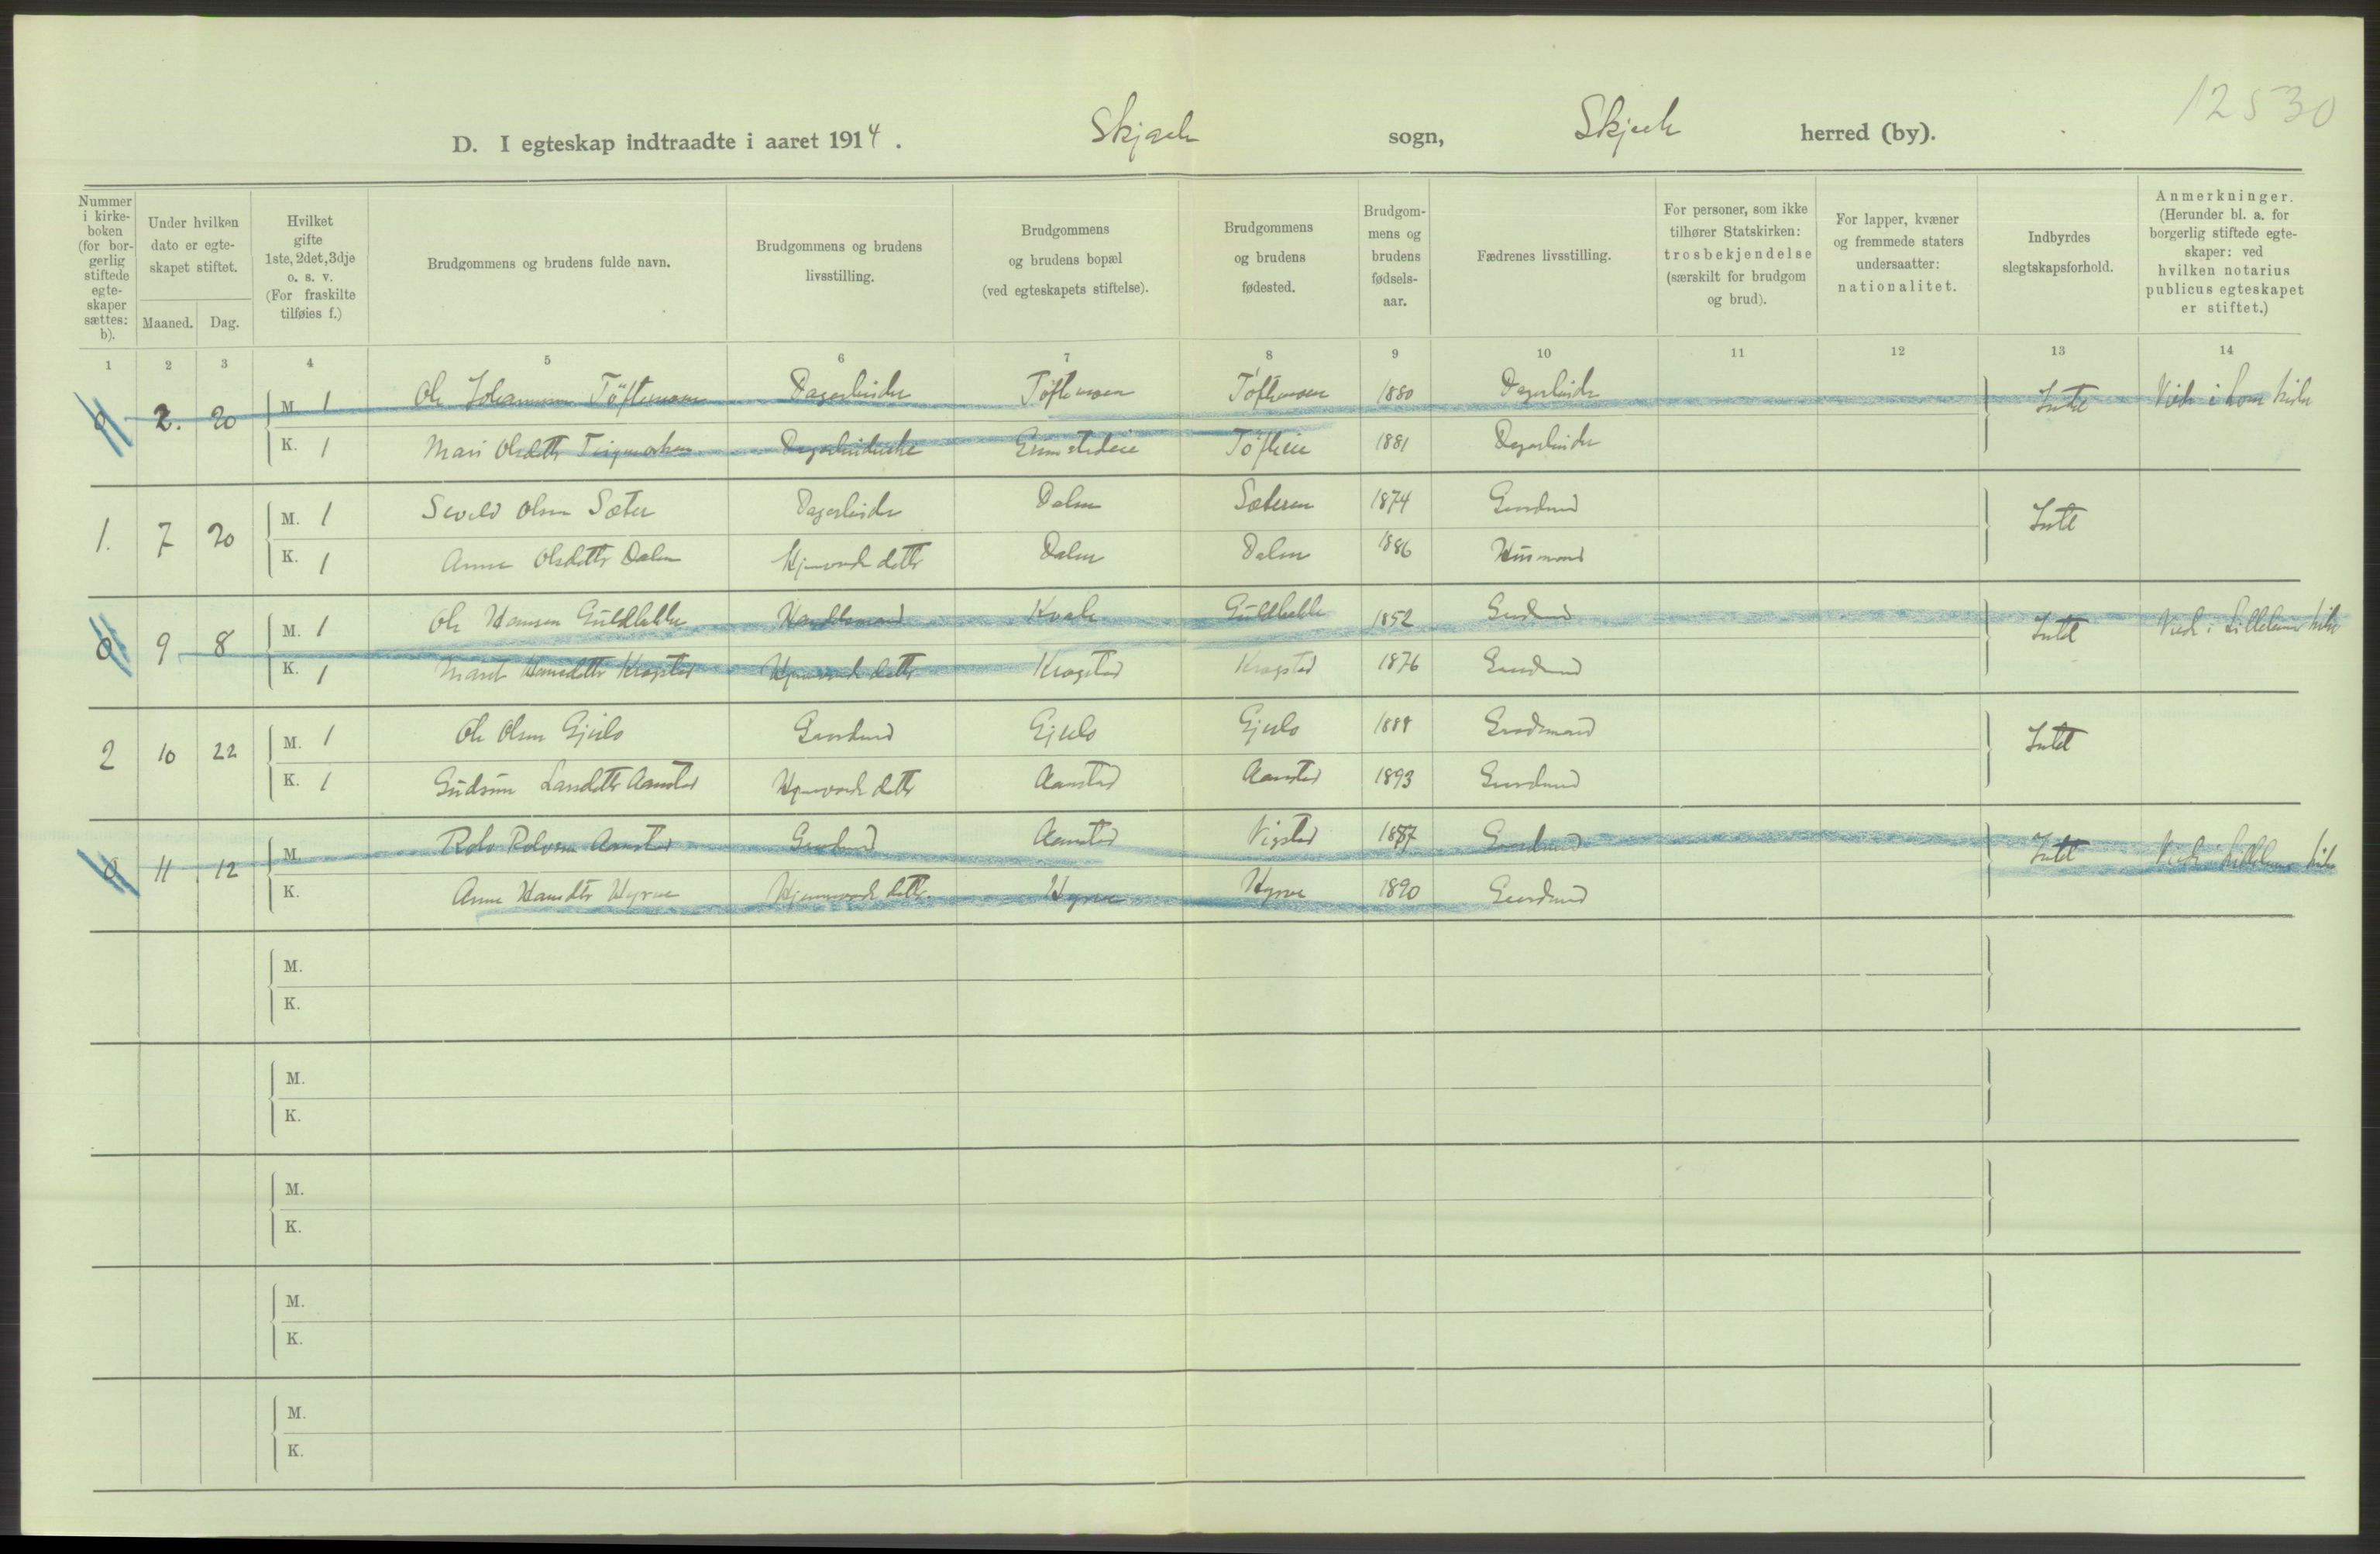 12530
D. I egteskap indtraadte i aaret 1914. Skjaak sogn, Skjaak herred (by).
Nummer i kirkeboken (for borgerlig stiftede egteskaper sættes: b).
Under hvilken dato er egteskapet stiftet.
Maaned. Dag.
Hvilket gifte 1ste, 2det, 3dje o. s. v. (For fraskilte tilføies f.)
Brudgommens og brudens fulde navn.
Brudgommens og brudens livsstilling.
Brudgommens og brudens bopæl (ved egteskapets stiftelse).
Brudgommens og brudens fødested.
Brudgommens og brudens fødselsaar.
Fædrenes livsstilling.
For personer, som ikke tilhører Statskirken: trosbekjendelse (særskilt for brudgom og brud).
For lapper, kvæner og fremmede staters undersaatter: nationalitet.
Indbyrdes slegtskapsforhold.
Anmerkninger. (Herunder bl. a. for borgerlig stiftede egteskaper: ved hvilken notarius publicus egteskapet er stiftet.)
1 2 3 4 5 6 7 8 9 10 11 12 13 14
0 2. 20 M. 1 Ole Johannesen Töftemoen Dagarbeider Töftemoen Töftemoen 1880 Dagarbeider Intet Viede i Lom kirke
K. 1 Mari Olsdatter Dagarbeiderske Töfteeie 1881 Dagarbeider
1. 7 20 M. 1 Olsen Sæter Dagarbeider Dalen Sæteren 1874 Gaardmand Intet
K. 1 Anne Olsdatter Dalen Hjemmev. datter Dalen Dalen 1886 Husmand
0 9 8 M. 1 Ole Hansen Guldbakke Kvale Guldbakke 1852 Gaardmand Intet Viede i Lillehammer kirke
K. 1 Marit Hansdatter Krogstad datter Krogstad Krogstad 1876 Gaardmand
2 10 22 M. 1 Ole Olsen Gjeilo Gaardmand Gjeilo Gjeilo 1888 Gaardmand Intet
K. 1 Gudrun Larsdatter Aamstad datter Aamstad Aamstad 1893 Gaardmand
0 11 12 M. Rolv Rolvsen Aamstad Gaardmand Aamstad Vigstad 1887 Gaardmand Intet Viede i Lillehammer kirke
K. Anne Hansdtr Hyrve datter Hyrve Hyrve 1890 Gaardmand
M.
K.
M.
K.
M.
K.
M.
K.
M.
K.